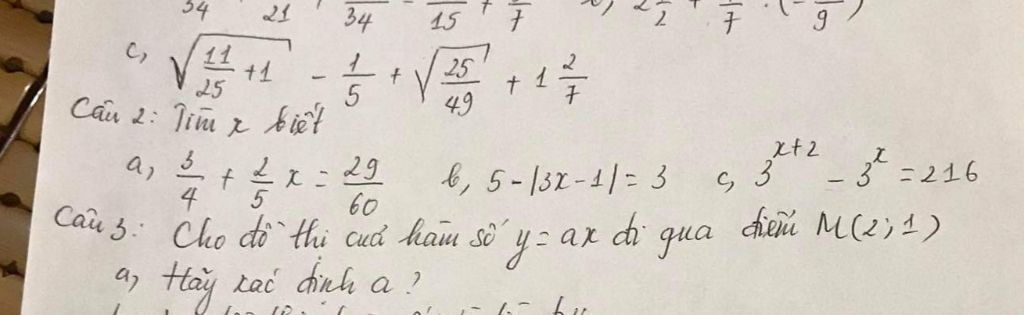 34 21 34 15 + 7 2 2 + 7 . (- 9 )
c, √(11/25 + 1) - 1/5 + √(25/49) + 1 2/7
Câu 2: Tìm x biết
a, 3/4 + 2/5 x = 29/60 b, 5 - |3x - 1| = 3 c, 3^(x+2) - 3^x = 216
Câu 3: Cho đồ thị của hàm số y = ax đi qua điểm M(2; 1)
a, Hãy xác định a?